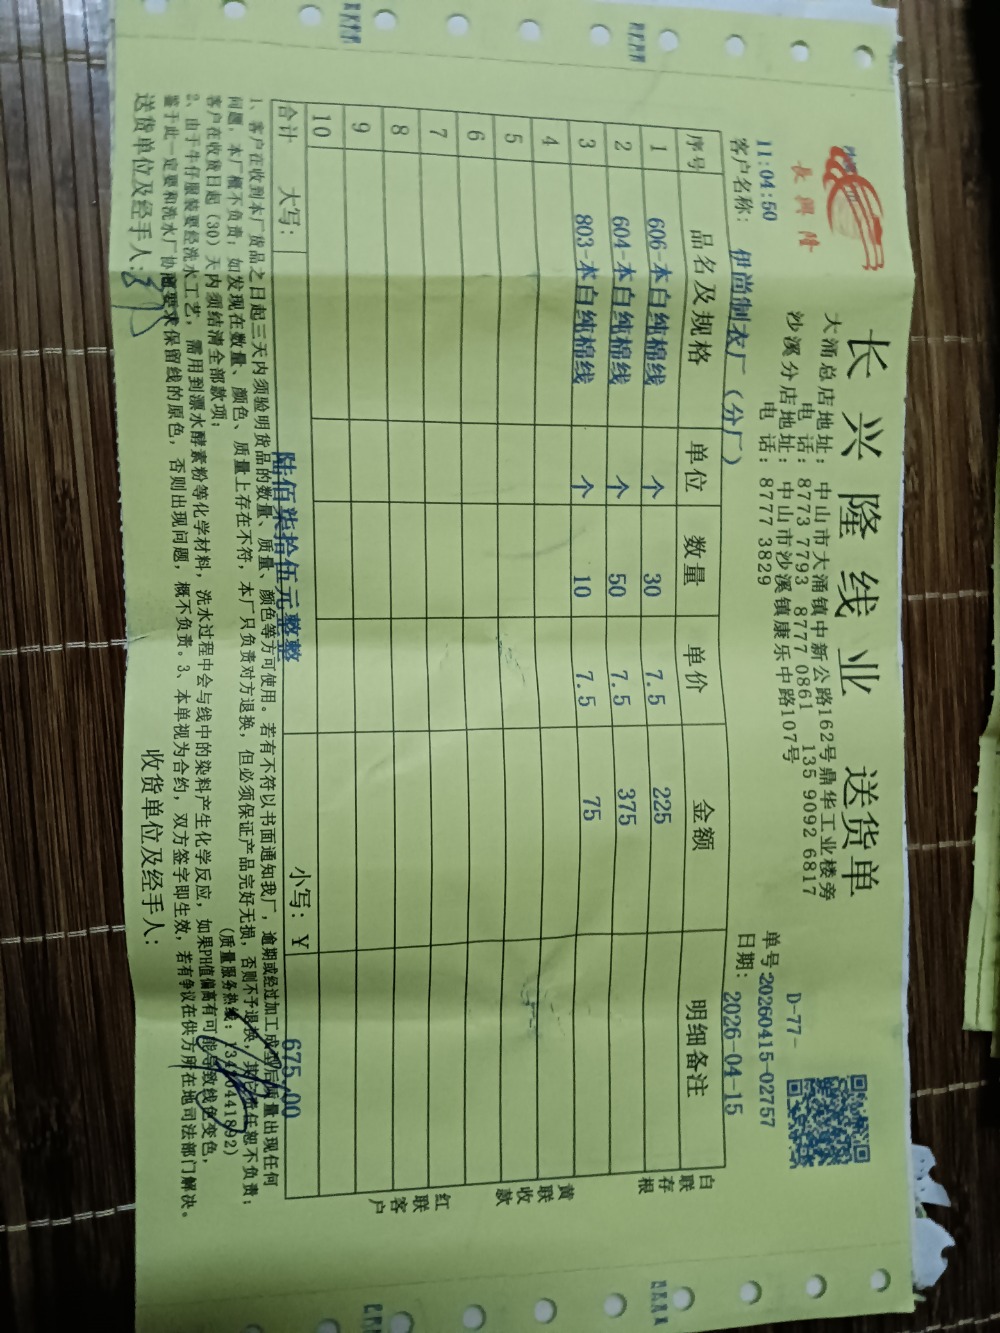 長興隆
长兴隆线业 送货单
大涌总店地址: 中山市大涌镇中新公路162号鼎华工业楼旁
电 话: 8773 7793 8777 0861 135 9092 6817
沙溪分店地址: 中山市沙溪镇康乐中路107号
电 话: 8777 3829
D-77-
11:04:50
单号:20260415-02757
客户名称: 伊尚制衣厂(分厂)
日期: 2026-04-15
序号 品名及规格 单位 数量 单价 金额 明细备注
1 606-本白纯棉线 个 30 7.5 225
2 604-本白纯棉线 个 50 7.5 375
3 803-本白纯棉线 个 10 7.5 75
4
5
6
7
8
9
10
合计 大写: 陆佰柒拾伍元整整 小写: ¥ 675.00
白联存根
黄联收款
红联客户
1、客户在收到本厂货品之日起三天内须验明货品的数量、质量、颜色等方可使用。若有不符以书面通知我厂, 逾期或经过加工成型后质量出现任何
问题, 本厂概不负责; 如发现在数量、颜色、质量上存在不符, 本厂只负责对方退换, 但必须保证产品完好无损, 否则不予退换, 其它责任恕不负责;
客户在收货日起(30)天内须结清全部款项; (质量服务热线:
2、由于牛仔服装要经洗水工艺, 需用到漂水酵素粉等化学材料, 洗水过程中会与线中的染料产生化学反应, 如果PH值偏高有可能导致线色变色,
鉴于此一定要和洗水厂协商要求保留线的原色, 否则出现问题, 概不负责。3、本单视为合约, 双方签字即生效, 若有争议在供方所在地司法部门解决。
送货单位及经手人: 收货单位及经手人: